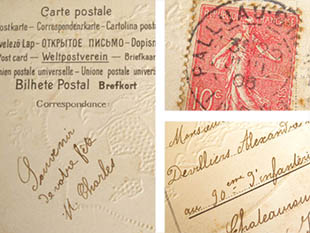 Carte postale
Correspondenzkarte - Cartolina posta
Velező Lap - ОТКРЫТОЕ ПИСЬМО - Dopisn
Post card - Weltpostverein - Briefkaar
nien postale universelle - Unione postale universal
Bilhete Postal Brefkort
Correspondance
Souvenir
de votre fête
Charles
PALLUAU
10c
Monsieur
Devilliers Alexandre
au 90ème d'infanterie
Châteauroux